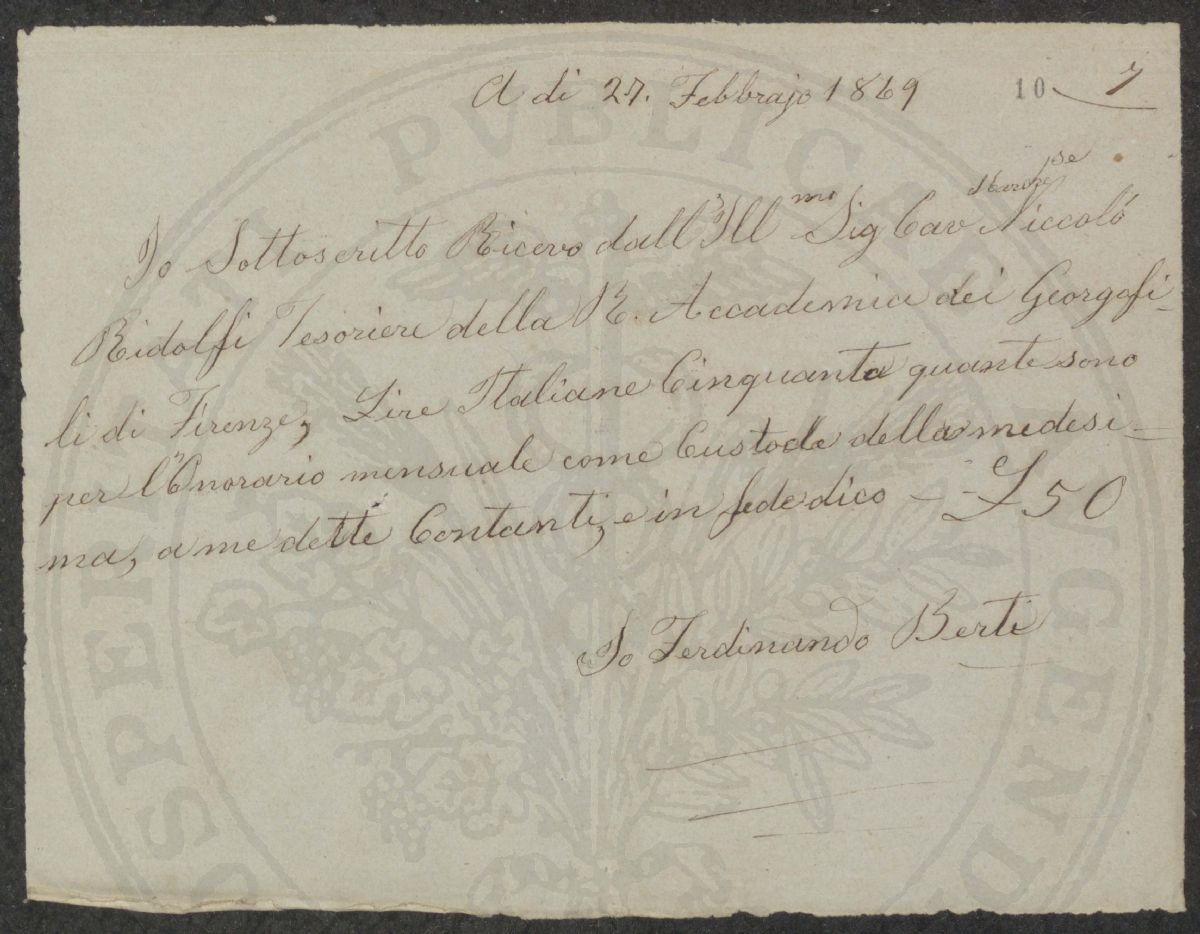 A di 27. Febbrajo 1869
10 7
Io Sottoscritto Ricevo dall'Ill mo Sig Cav March se Niccolò
Ridolfi Tesoriere della R. Accademia dei Georgofi-
li di Firenze, Lire Italiane Cinquanta quante sono
per l'Onorario mensuale come Custode della medesi=
ma, a me dette Contanti, e in fede dico — £50
Io Ferdinando Berti
PROSPERITATI PVBLICAE AVGENDAE